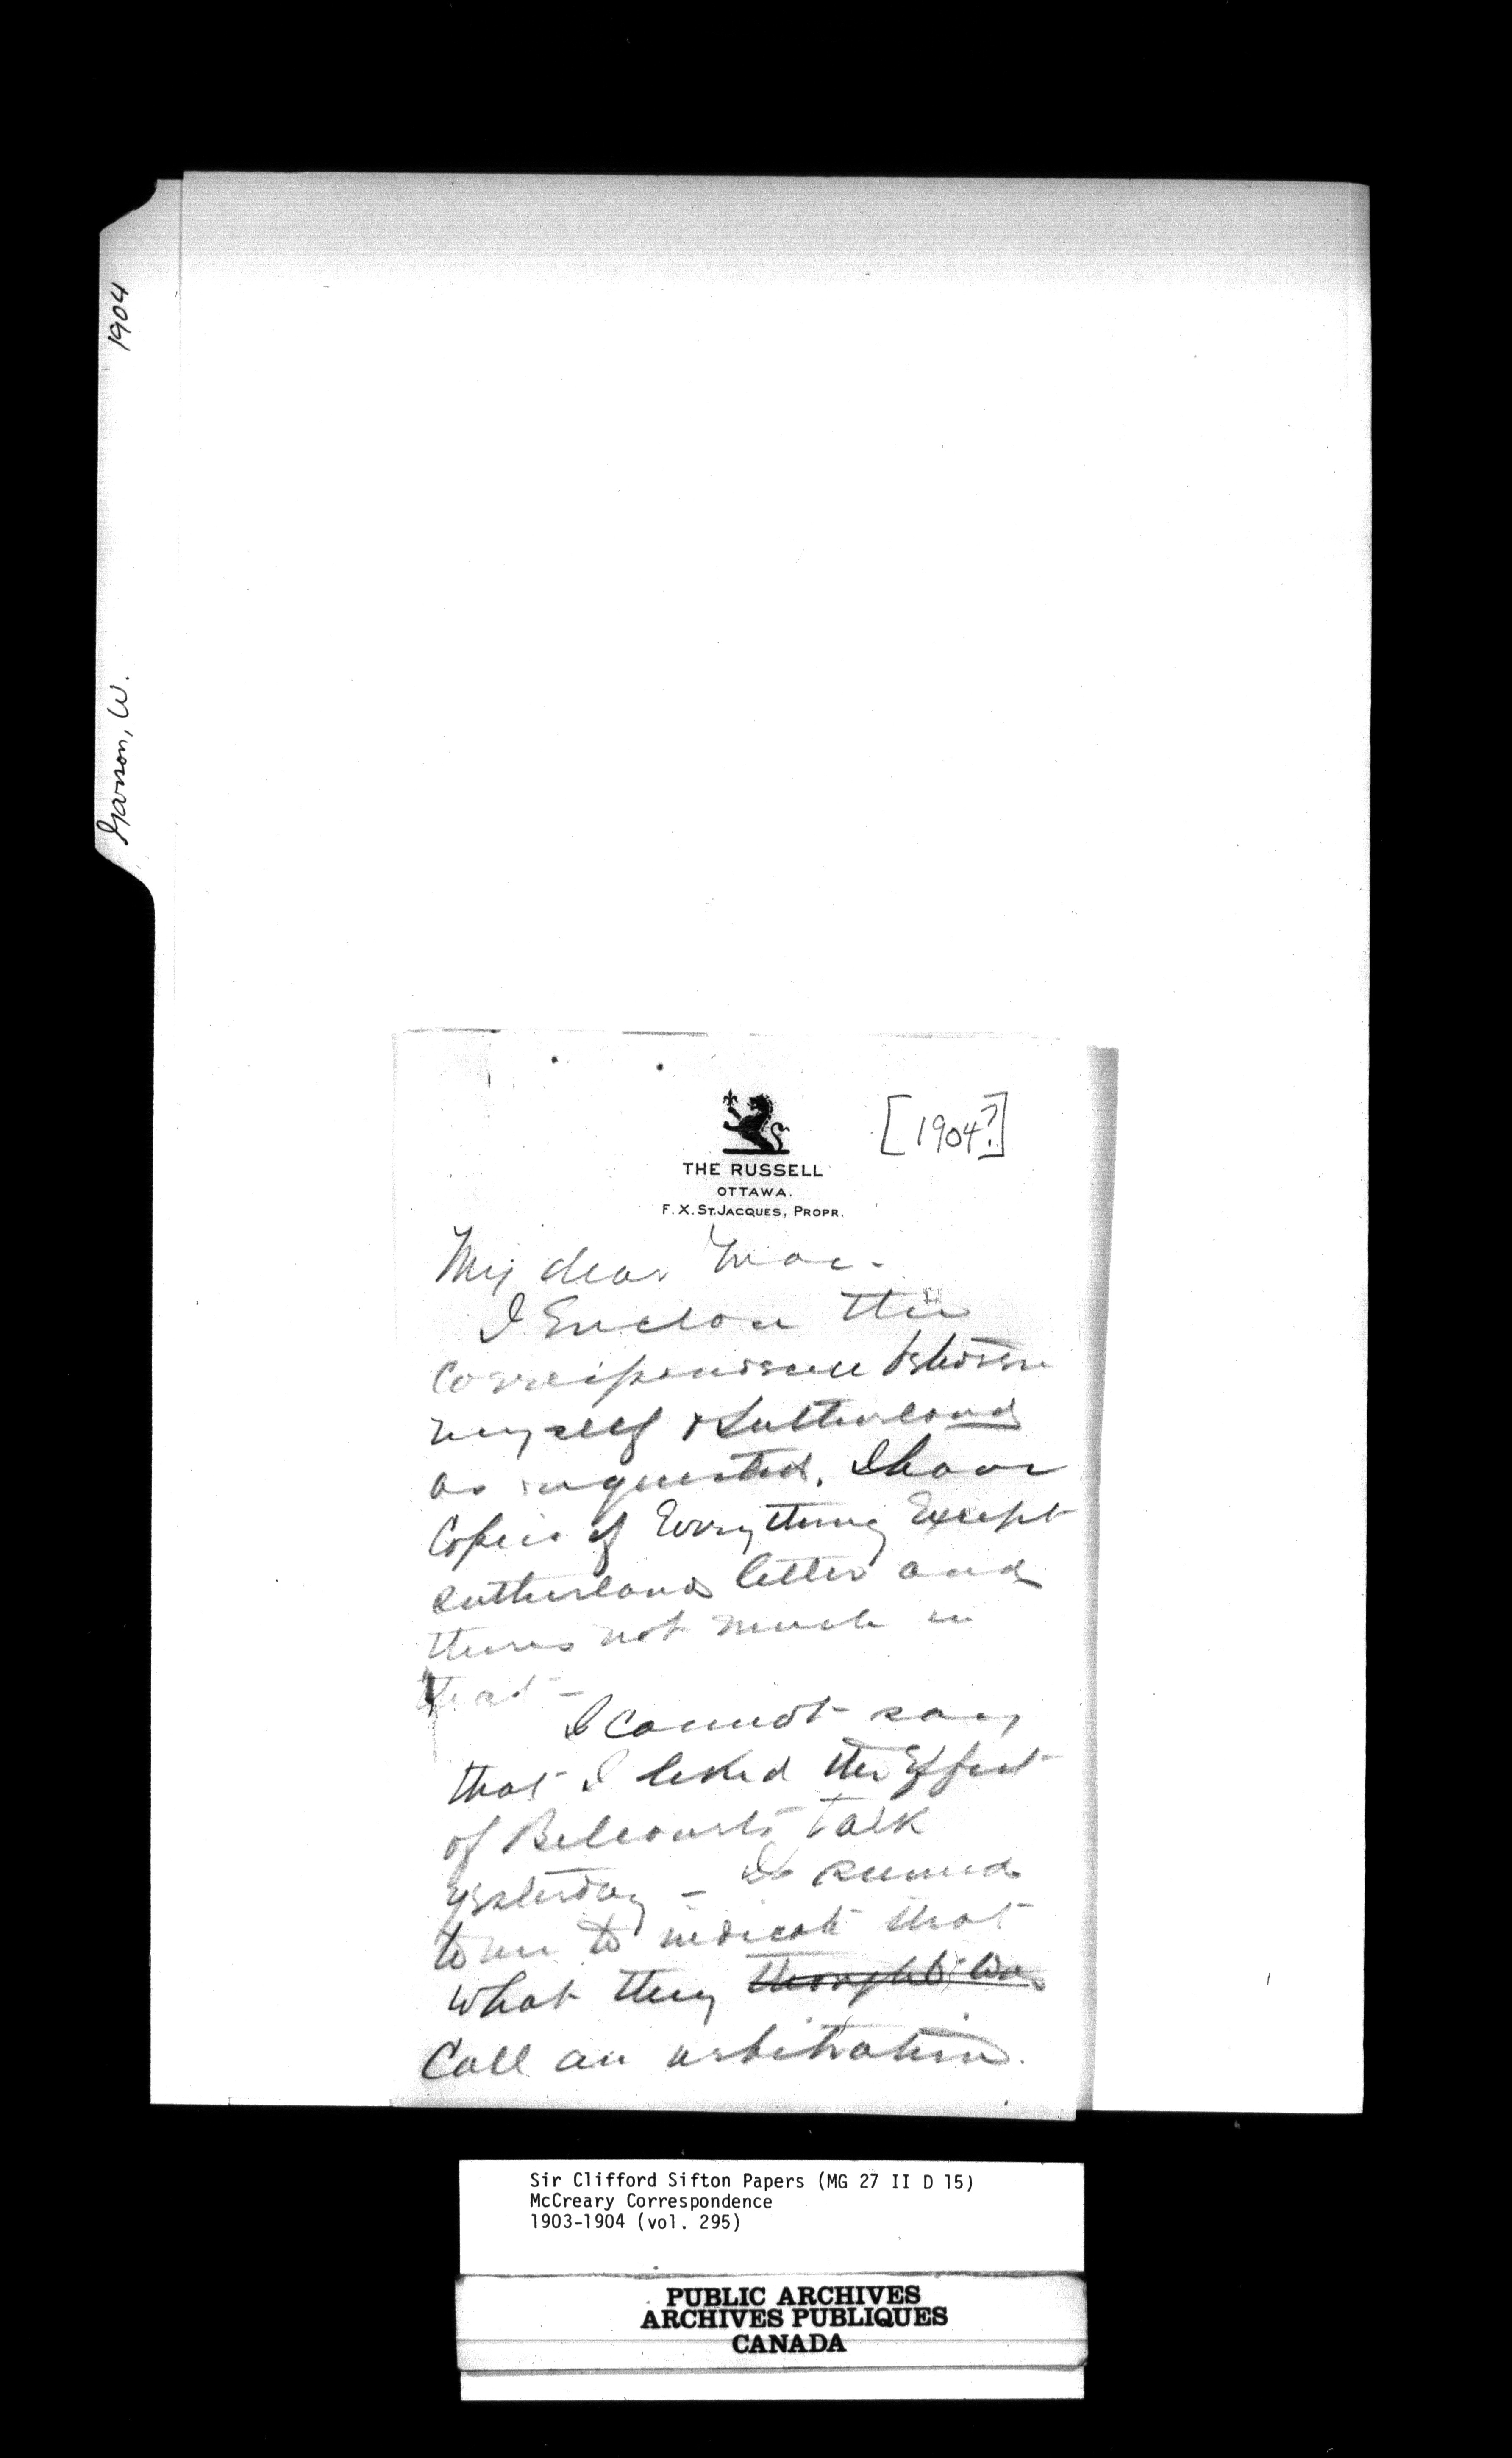 1904
Garson, W.
[1904?]
THE RUSSELL
OTTAWA.
F. X. ST. JACQUES, PROPR.
My dear Mac -
I Enclose the
correspondence between
myself & Sutherland
as requested. I have
Copies of Everything Except
Sutherlands letter and
theres not much in
that -
I cannot say
that I liked the Effect
of Belcourts talk
yesterday - It seemed
to me to indicate that
what they thought was
Call an arbitration.
Sir Clifford Sifton Papers (MG 27 II D 15)
McCreary Correspondence
1903-1904 (vol. 295)
PUBLIC ARCHIVES
ARCHIVES PUBLIQUES
CANADA